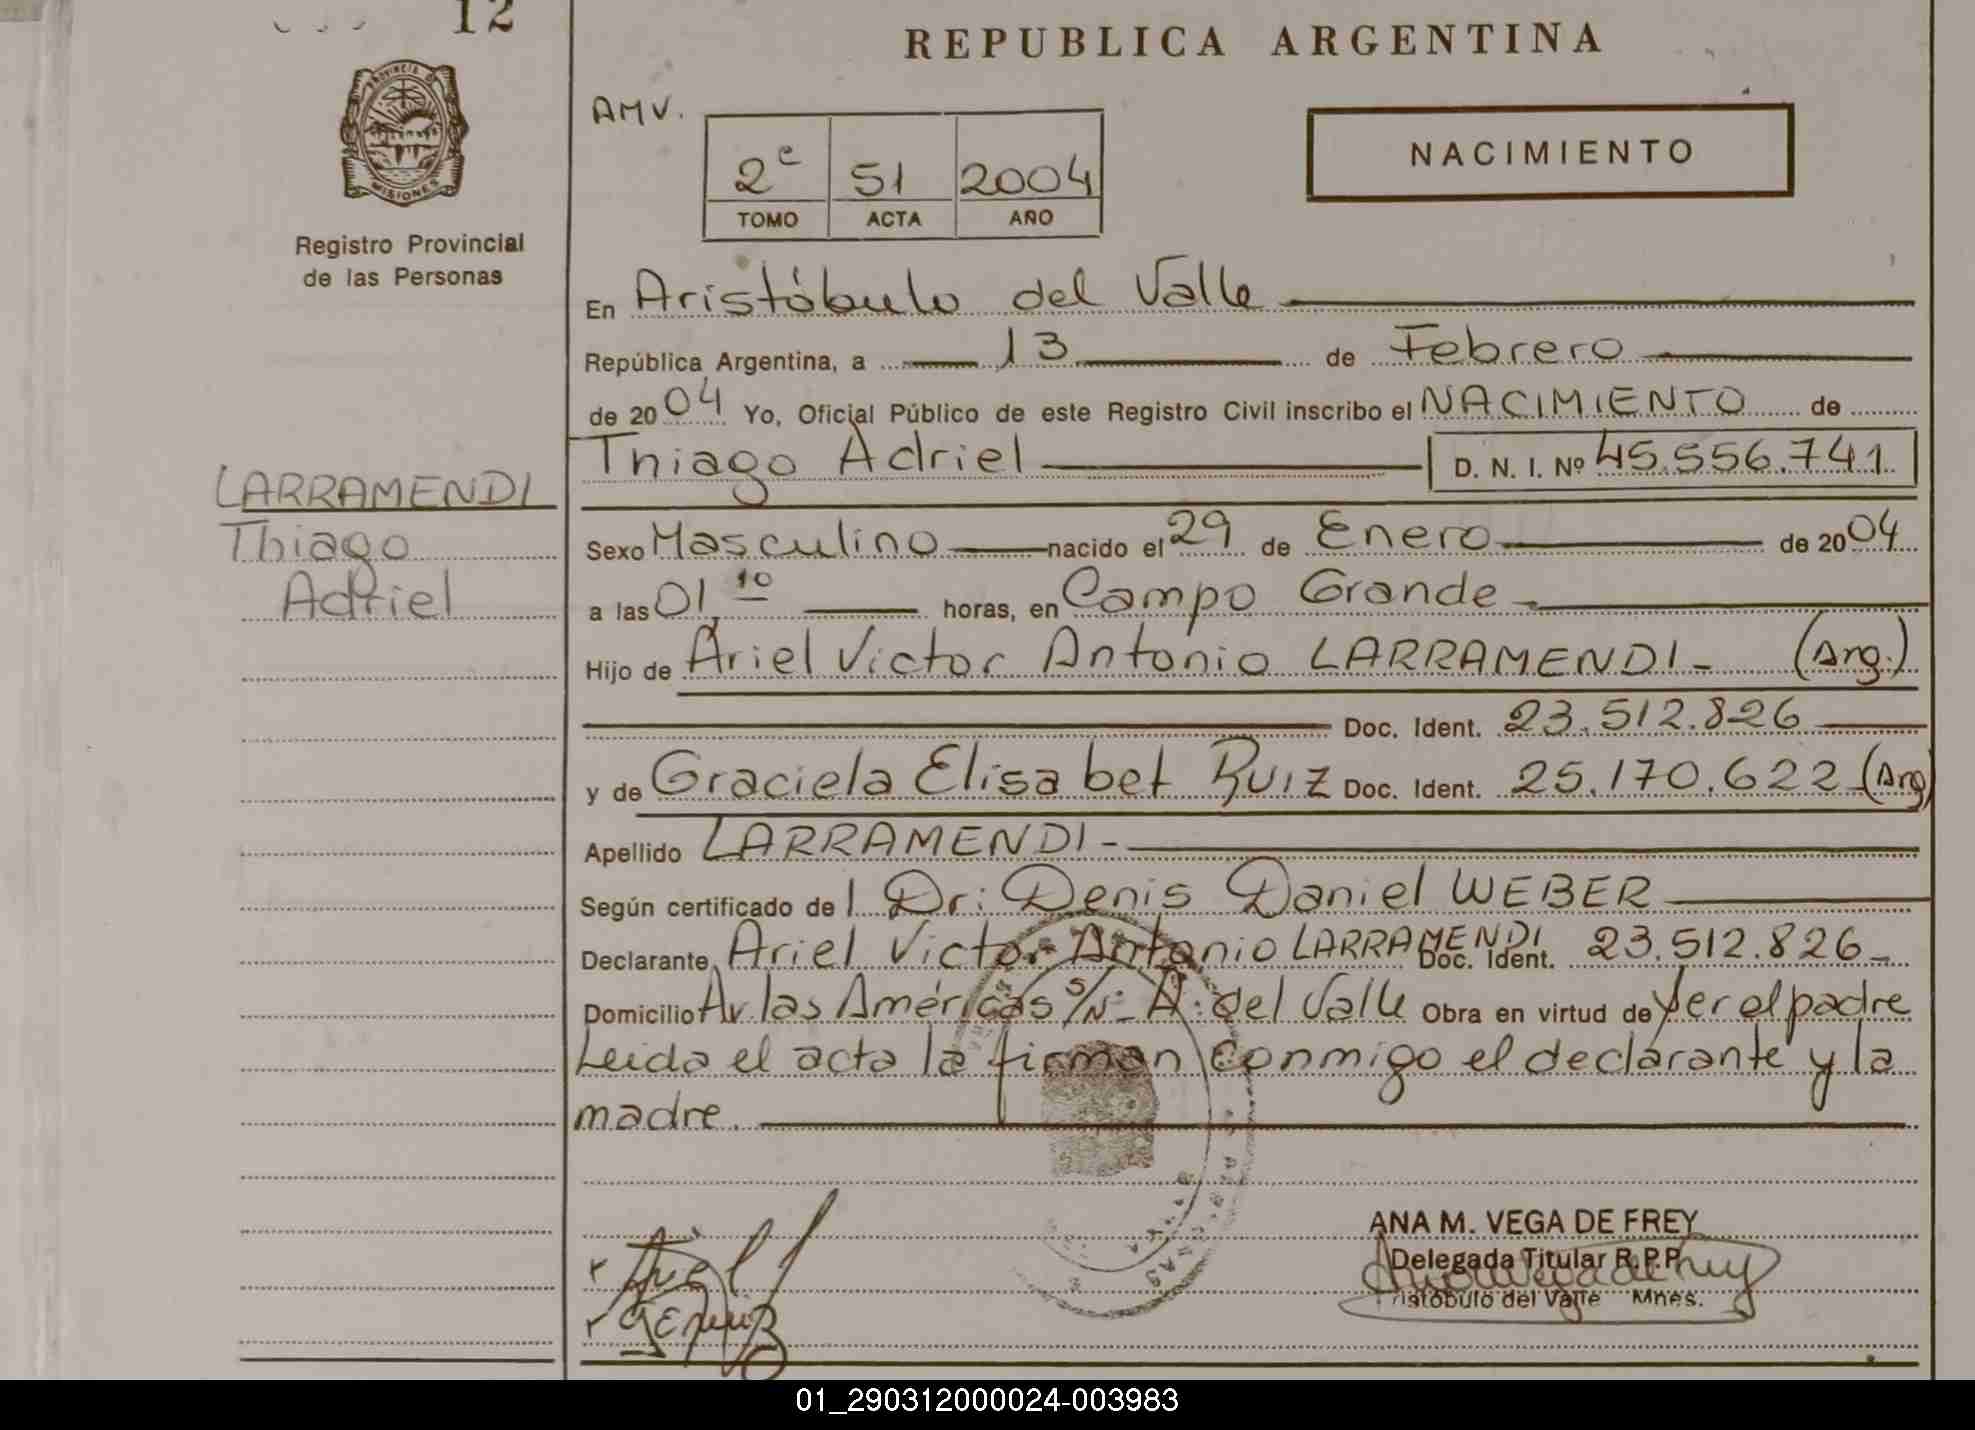 12
REPUBLICA ARGENTINA
PROVINCIA DE
MISIONES
Registro Provincial
de las Personas
AMV.
2º 51 2004
TOMO ACTA AÑO
NACIMIENTO
En Aristóbulo del Valle
República Argentina, a 13 de Febrero
de 2004 Yo, Oficial Público de este Registro Civil inscribo el NACIMIENTO de
Thiago Adriel D. N. I. Nº 45.556.741
LARRAMENDI
Thiago
Adriel
Sexo Masculino nacido el 29 de Enero de 2004
a las 01,10 horas, en Campo Grande
Hijo de Ariel Victor Antonio LARRAMENDI - (Arg.)
Doc. Ident. 23.512.826
y de Graciela Elisabet RUIZ Doc. Ident. 25.170.622 (Arg)
Apellido LARRAMENDI -
Según certificado de l Dr: Denis Daniel WEBER
Declarante Ariel Victor Antonio LARRAMENDI Doc. Ident. 23.512.826
Domicilio Av. las Américas s/Nº - A. del Valle Obra en virtud de ser el padre
Leida el acta la firman conmigo el declarante y la
madre.
ANA M. VEGA DE FREY
Delegada Titular R.P.P.
ristóbulo del Valle Mnes.
01_290312000024-003983